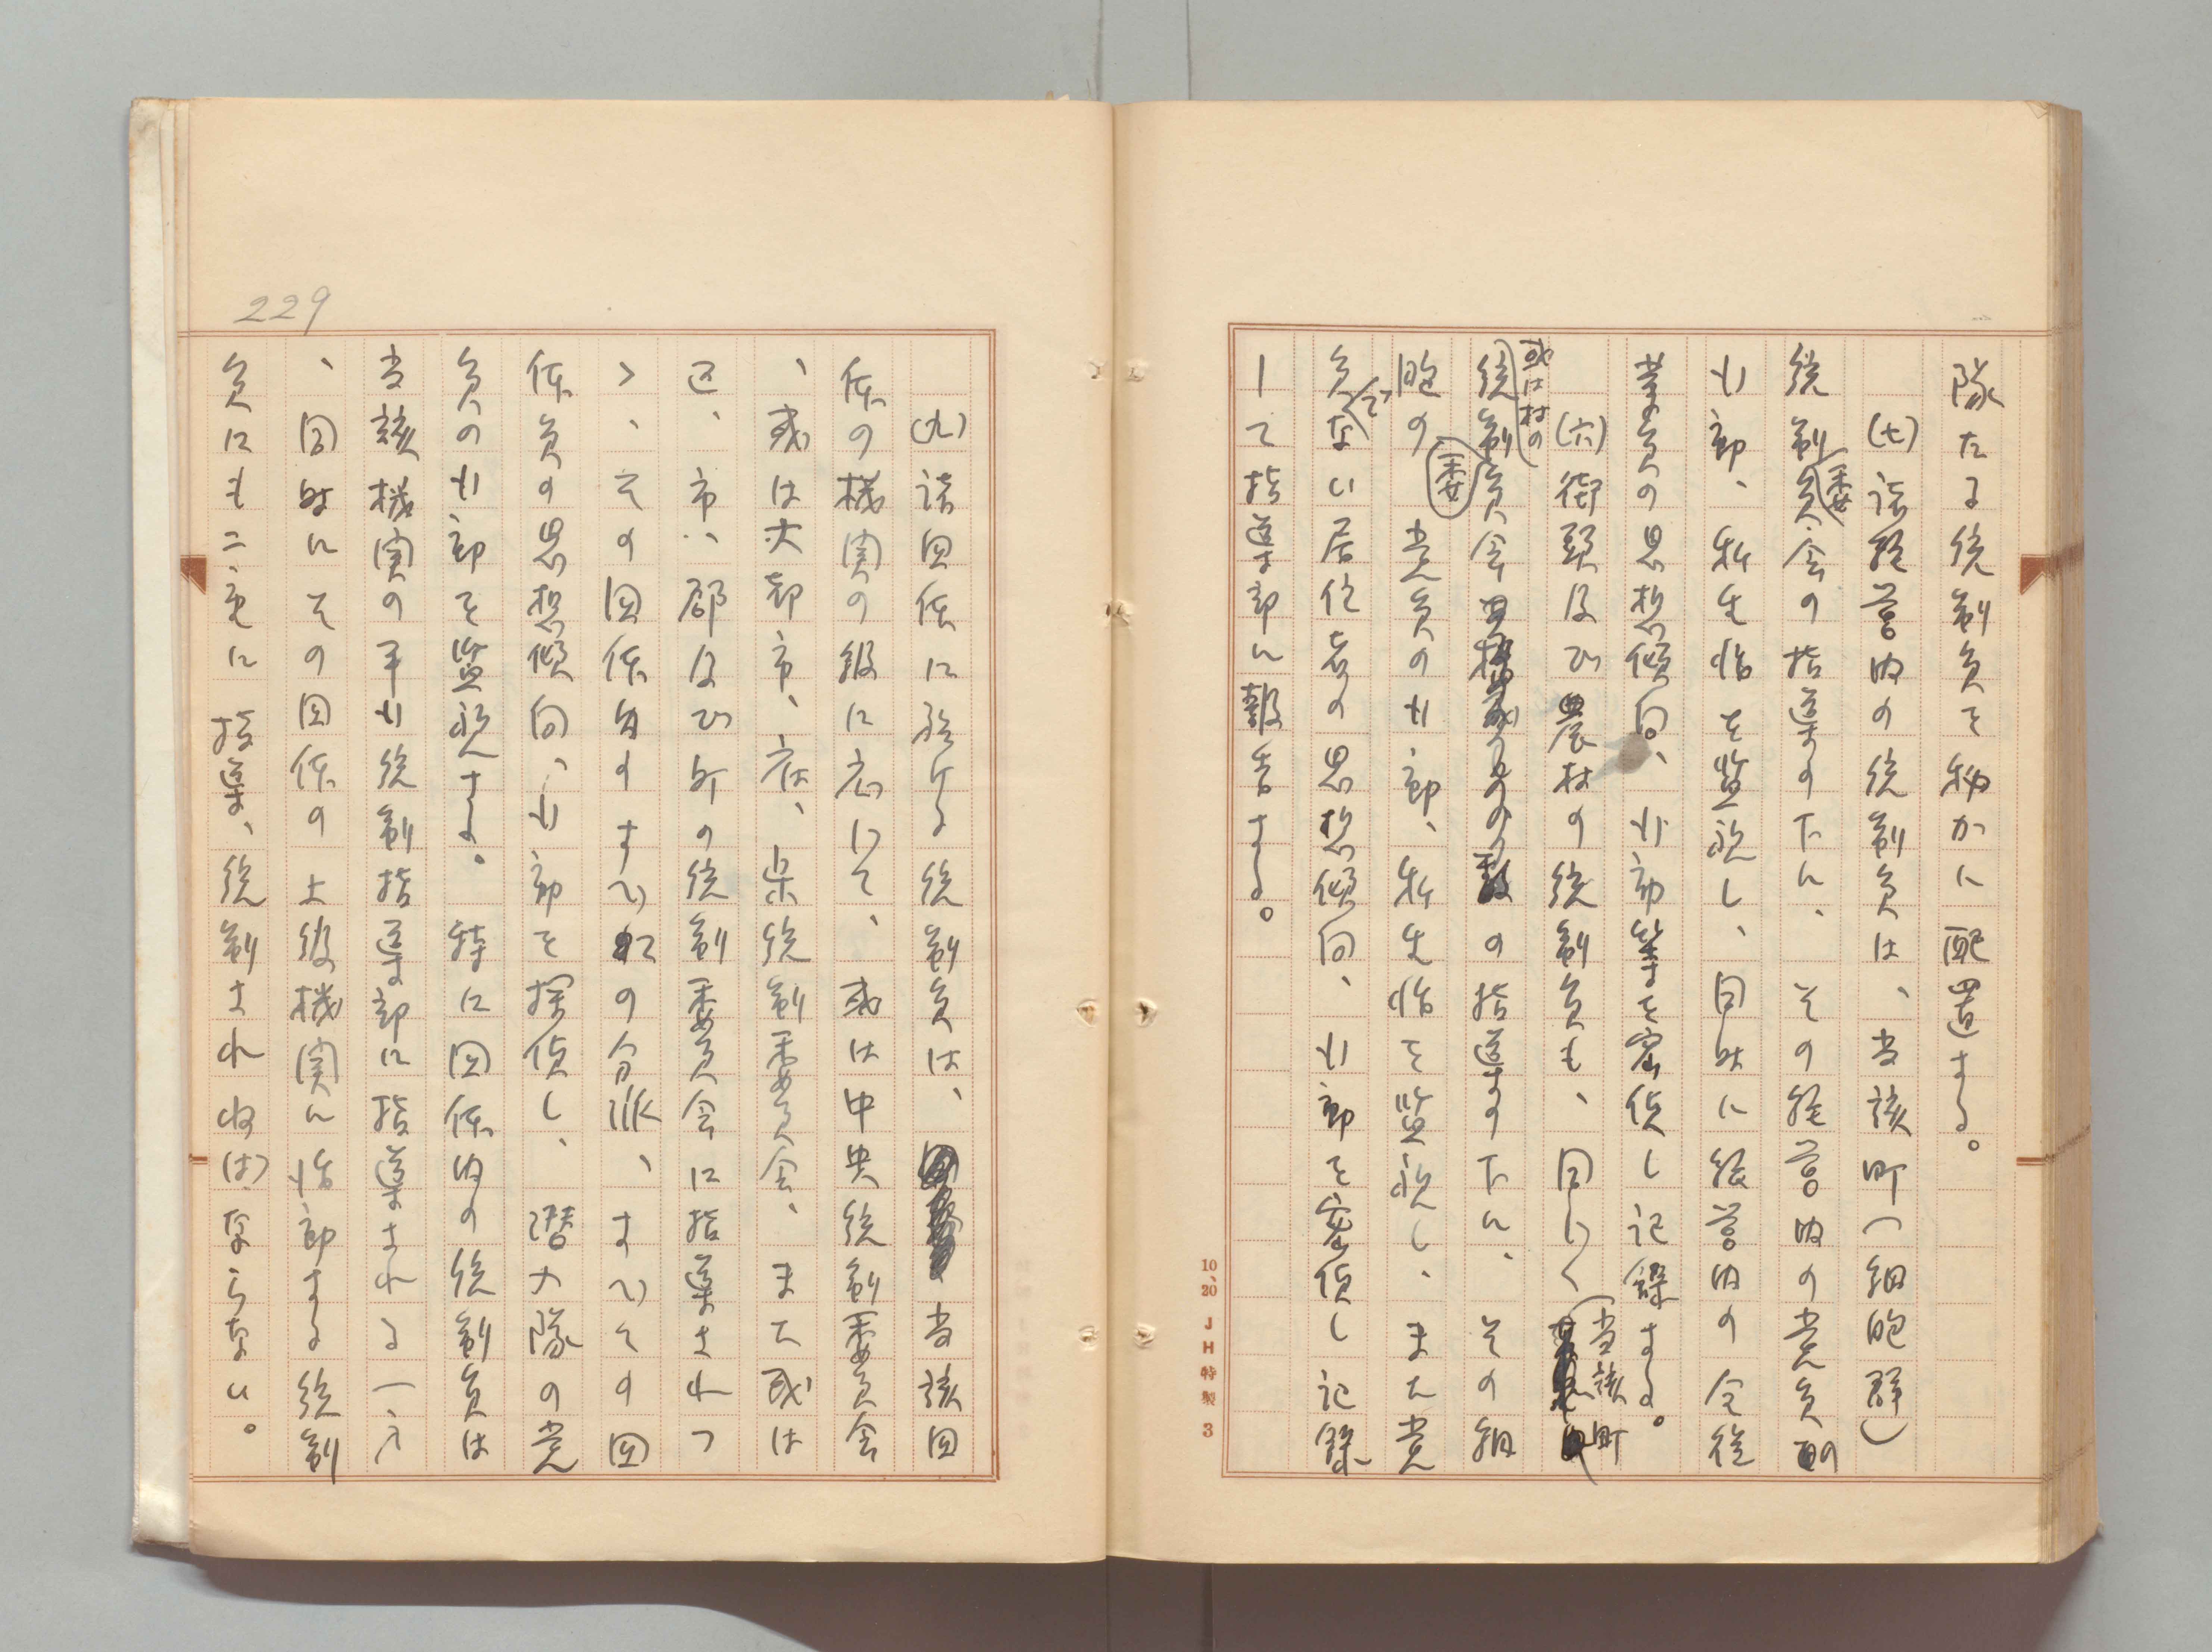 隊たる統制員を秘かに配置する。
(七)諸経営内の統制員は、当該町(細胞群)
統制委員会の指導の下に、その経営内の党員の
行動、私生活を監視し、同時に経営内の全従
業員の思想傾向、行動等を密偵し記録する。
(六)街頭及び農村の統制員も、同じく当該町
或は村の
統制委員会の指導の下に、その細
胞の党員の行動、私生活を監視し、また党
員でない居住者の思想傾向、行動を密偵し記録
して指導部に報告する。
10、20 JH特製 3
(九)諸団体に於ける統制員は、当該団
体の機関の級に応じて、或は中央統制委員会
、或は大都市、府、県統制委員会、または
区、市、郡及び町の統制委員会に指導されつ
ゝ、その団体内のすべての分派、すべての団
体員の思想傾向、行動を探偵し、潜入隊の党
員の行動を監視する。特に団体内の統制員は
当該機関の平行統制指導部に指導される一方
、同時にその団体の上級機関に活動する統制
員にも二重に指導、統制されねばならない。
229